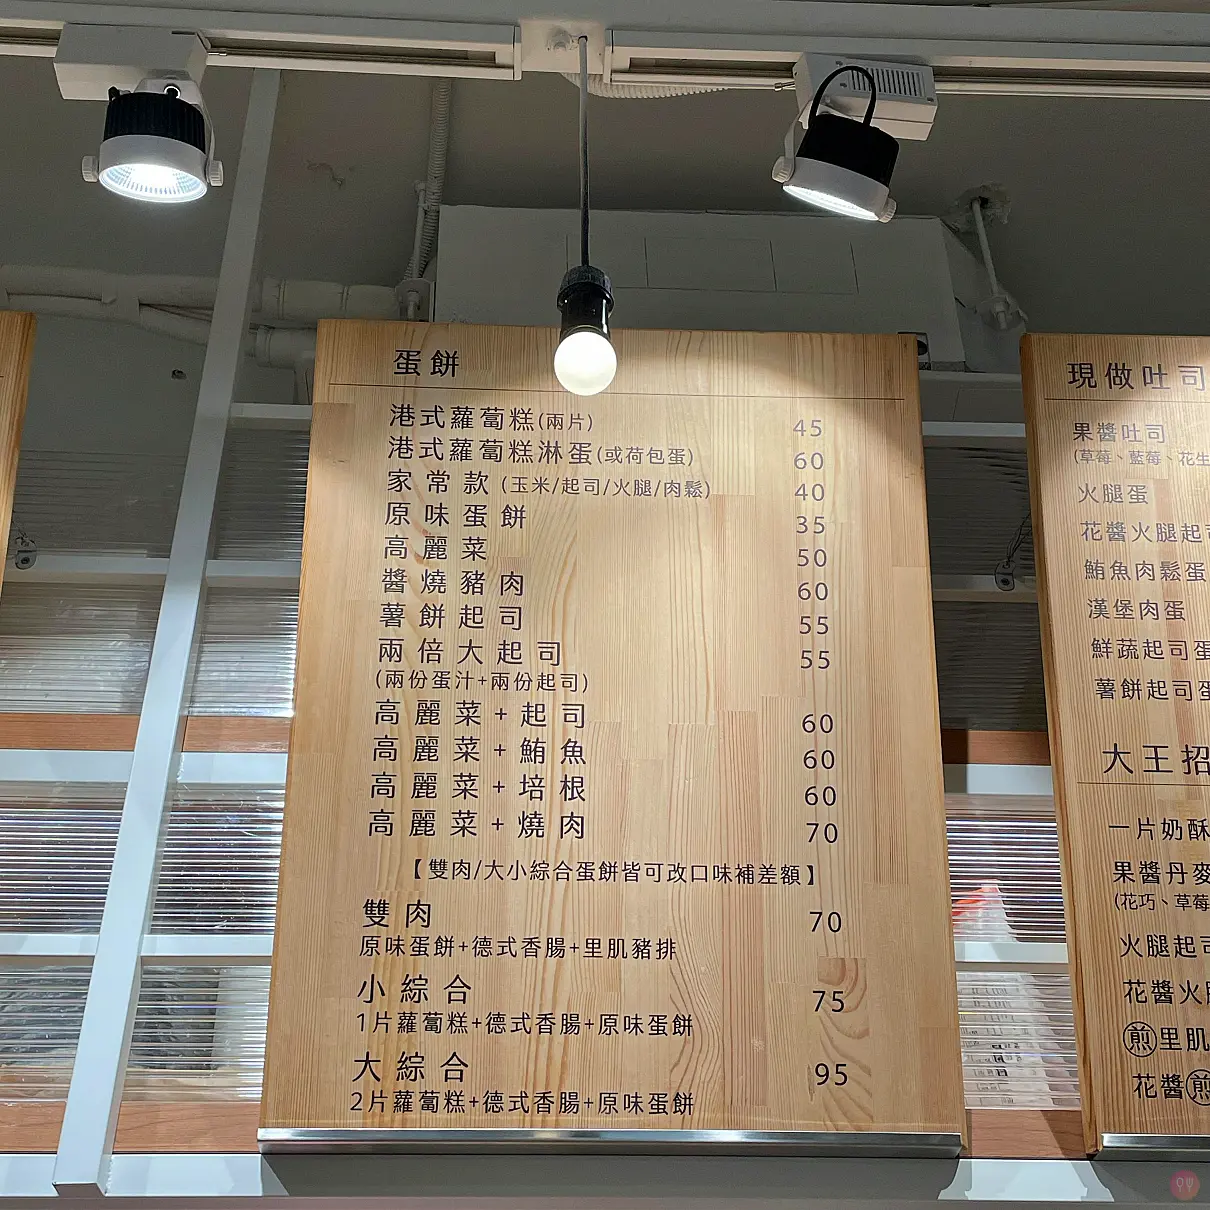 蛋餅
港式蘿蔔糕(兩片) 45
港式蘿蔔糕淋蛋(或荷包蛋) 60
家常款(玉米/起司/火腿/肉鬆) 40
原味蛋餅 35
高麗菜 50
醬燒豬肉 60
薯餅起司 55
兩倍大起司 55
(兩份蛋汁+兩份起司)
高麗菜+起司 60
高麗菜+鮪魚 60
高麗菜+培根 60
高麗菜+燒肉 70
【雙肉/大小綜合蛋餅皆可改口味補差額】
雙肉 70
原味蛋餅+德式香腸+里肌豬排
小綜合 75
1片蘿蔔糕+德式香腸+原味蛋餅
大綜合 95
2片蘿蔔糕+德式香腸+原味蛋餅
現做吐司
果醬吐司
(草莓、藍莓、花生
火腿蛋
花醬火腿起司
鮪魚肉鬆蛋
漢堡肉蛋
鮮蔬起司蛋
薯餅起司蛋
大王招
一片奶酥
果醬丹麥
(花巧、草莓
火腿起司
花醬火腿
煎里肌
花醬煎